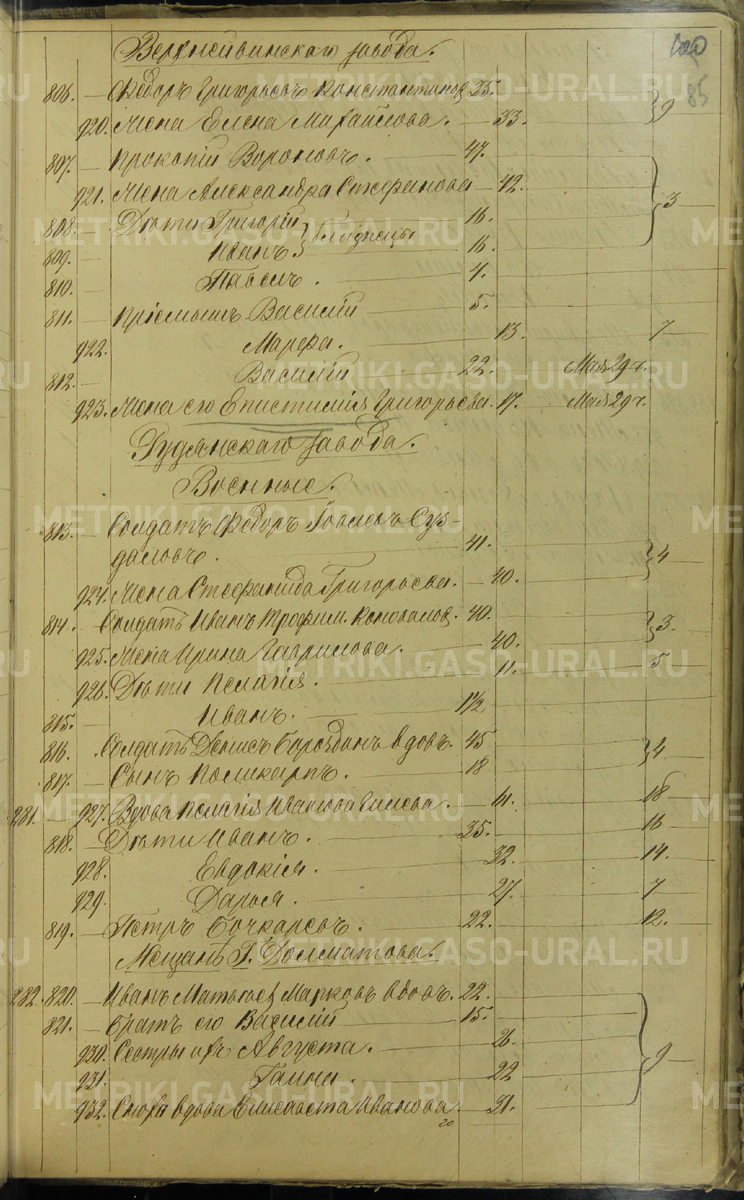 100
85
Верхнейвинскаго завода.
806. — Ѳедоръ Григорьевъ Константиновъ 35. 9
920. Жена Елена Михайлова. — 33.
807. — Прокопій Вороновъ. — 47.
921. Жена Александра Стефанова — 42. 3
808. — Дѣти Григорій 16.
близнецы
809. Иванъ 16.
810. — Павелъ. — 4.
811. — Пріемышъ Василій 5.
922. Марѳа. 13. 7
812. — Василій 22. Мая 29 ч.
923. Жена его Епистимія Григорьева. 17. Мая 29 ч.
Рудянскаго завода.
Военные.
813. — Солдатъ Ѳедоръ Суз-
даловъ. 41. 4
924. Жена Стефанида Григорьева. — 40.
814. — Солдатъ Иванъ Трофим. Коноваловъ. 40. 3.
925. Жена Ирина Гаврилова. — 40.
926. Дѣти Пелагія. 11. 5
815. — Иванъ. 1 1/2
816. — Солдатъ Денисъ вдовъ. 45 4
817. — Сынъ Поликарпъ. — 18
281. 927. Вдова Пелагія Иванова 18
818. — Дѣти Иванъ. — 35. 16
928. Евдокія. 32. 14.
929. Дарья. 27. 7
819. — Петръ Бочкаревъ. 22. 12.
Мещанъ Г. Долматова.
282. 820. — Иванъ Матвѣевъ Марковъ вдовъ. 22.
821. — Братъ его Василій — 15.
930. Сестры ихъ Августа. — 26. 9
931. Галина. 22
932. Сноха вдова Елисавета Иванова 31.
METRIKI.GASO-URAL.RU